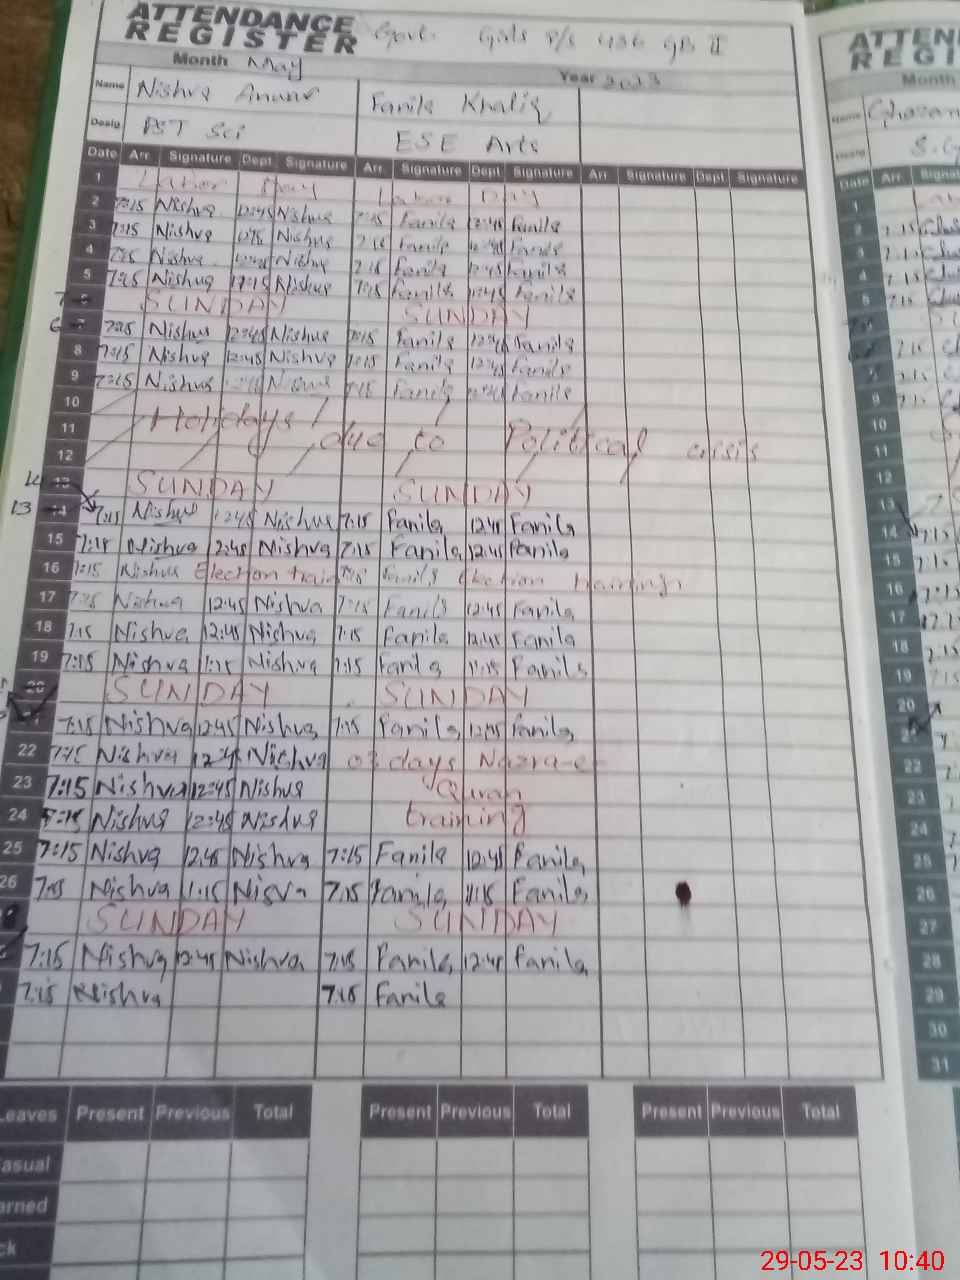 ATTENDANCE REGISTER Govt. Girls P/S 436 GB II
Month May Year 2023
Name Nishva Fanila Khaliq
Desig PST Sci ESE Arts
Date Arr. Signature Dept Signature Arr. Signature Dept Signature Arr. Signature Dept Signature
1 Labor Day Labor DAY
2 7:15 Nishva 12:45 Nishva 7:15 Fanila 12:45 Fanila
3 7:15 Nishva 12:45 Nishva 7:15 Fanila 12:45 Fanila
4 7:15 Nishva 12:45 Nishva 7:15 Fanila 12:45 Fanila
5 7:15 Nishva Nishva 7:15 Fanila Fanila
7 SUNDAY SUNDAY
6 7:15 Nishva 12:45 Nishva 7:15 Fanila 12:45 Fanila
8 7:15 Nishva 12:45 Nishva 7:15 Fanila 12:45 Fanila
9 7:15 Nishva Nishva 7:15 Fanila 12:45 Fanila
10
11 Holidays due to Political crisis
12
14 13 SUNDAY SUNDAY
13 14 7:15 Nishva 12:45 Nishva 7:15 Fanila 12:45 Fanila
15 7:15 Nishva 12:45 Nishva 7:15 Fanila 12:45 Fanila
16 7:15 Nishva Election 7:15 Fanila Election training
17 7:15 Nishva 12:45 Nishva 7:15 Fanila 12:45 Fanila
18 7:15 Nishva 12:45 Nishva 7:15 Fanila 12:45 Fanila
19 7:15 Nishva 11:15 Nishva 7:15 Fanila 11:15 Fanila
20 SUNDAY SUNDAY
7:15 Nishva 12:45 Nishva 7:15 Fanila 12:45 Fanila
22 7:15 Nishva 12:45 Nishva 03 days Nazra-e-
23 7:15 Nishva 12:45 Nishva Quran
24 7:15 Nishva 12:45 Nishva training
25 7:15 Nishva 12:45 Nishva 7:15 Fanila 12:45 Fanila
26 7:15 Nishva 11:15 Nisva 7:15 Fanila 11:15 Fanila
SUNDAY SUNDAY
7:15 Nishva 12:45 Nishva 7:15 Fanila 12:45 Fanila
7:15 Nishva 7:15 Fanila
Leaves Present Previous Total Present Previous Total Present Previous Total
Casual
Earned
ATTEN
REGI
Month
Name
S.
Date Arr. Signatu
1
2 7:15
3 7:15
4 7:15
5 7:15
9 7:15
10
11
12
13
14 7:15
15 7:15
16 7:15
17 7:15
18 7:15
19 7:15
20
21
22
23
24
25
26
27
28
29
30
31
29-05-23 10:40